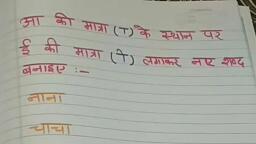 आ की मात्रा (ा) के स्थान पर
ई की मात्रा (ी) लगाकर नए शब्द
बनाइए :-
नाना
चाचा